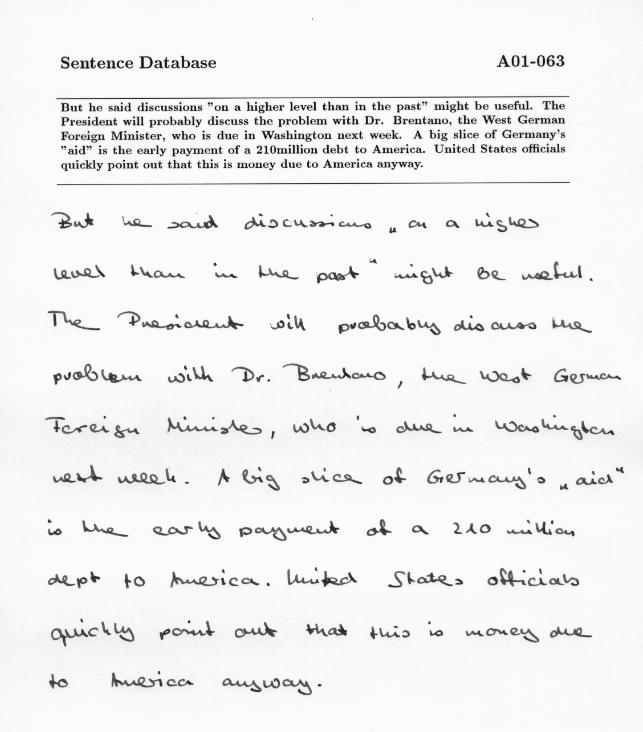 Sentence Database A01-063
But he said discussions "on a higher level than in the past" might be useful. The
President will probably discuss the problem with Dr. Brentano, the West German
Foreign Minister, who is due in Washington next week. A big slice of Germany's
"aid" is the early payment of a 210million debt to America. United States officials
quickly point out that this is money due to America anyway.
But he said discussions „on a higher
level than in the past" might be useful.
The President will probably discuss the
problem with Dr. Brentano, the West German
Foreign Minister, who is due in Washington
next week. A big slice of Germany's „aid"
is the early payment of a 210 million
dept to America. United States officials
quickly point out that this is money due
to America anyway.